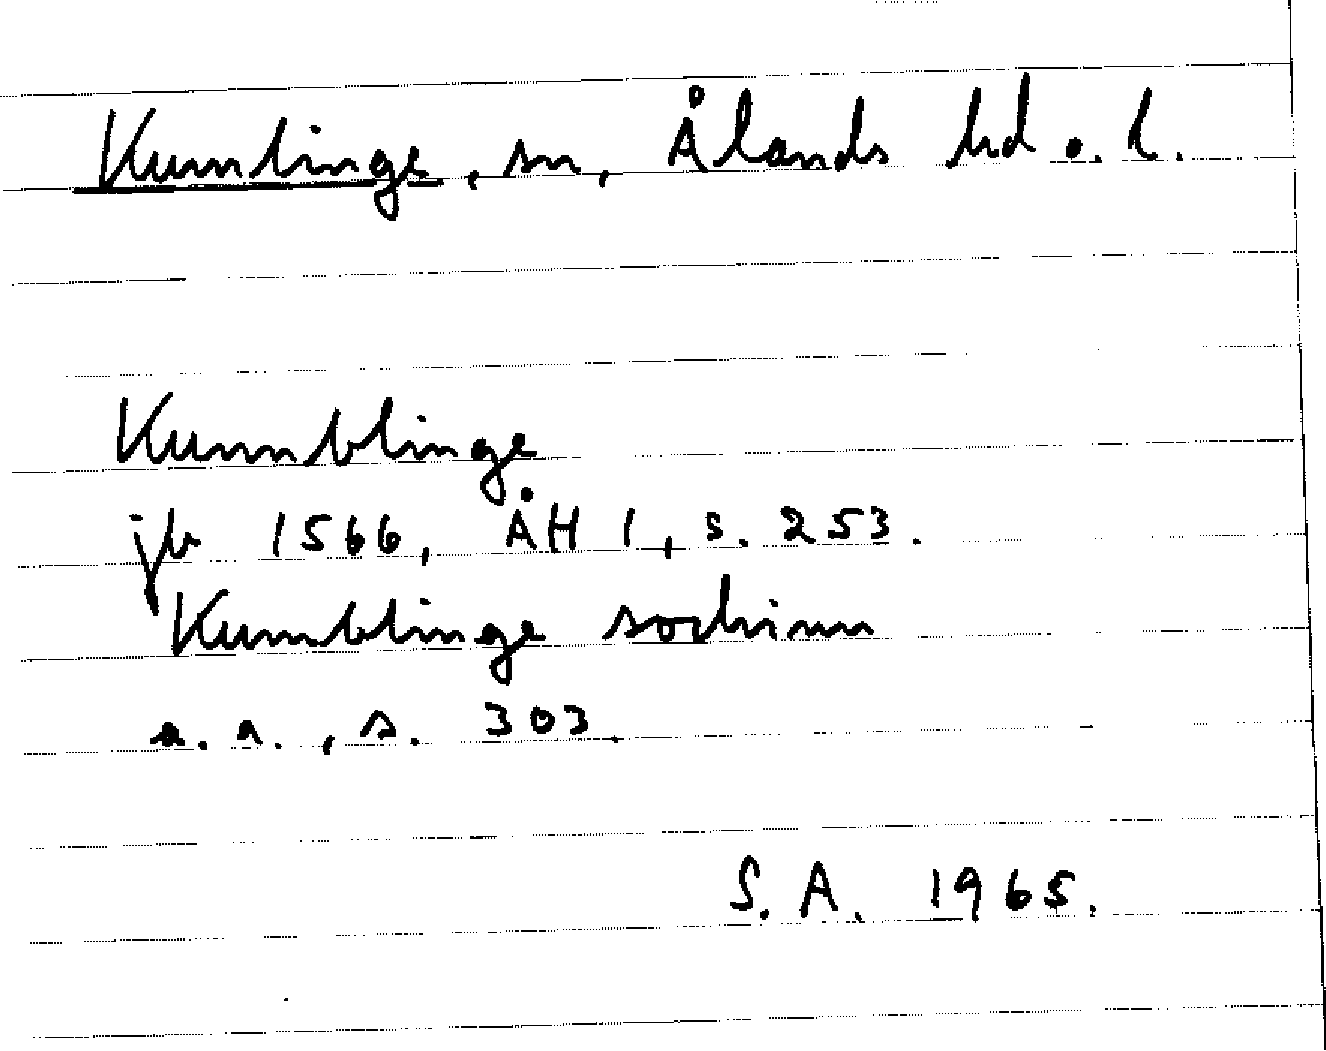 Kumlinge, sn, Ålands hd o. l.
Kumblinge
jb 1566, ÅH 1, s. 253.
Kumblinge sochinn
a. a., s. 303.
S. A. 1965.